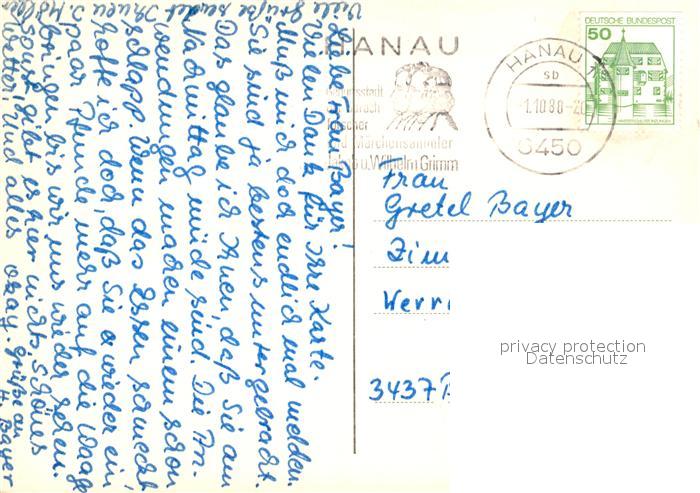 Liebe Frau Bayer!
Vielen Dank für Ihre Karte.
Muß mich doch endlich mal melden.
Sie sind ja bestens untergebracht.
Das glaube ich Ihnen, daß Sie am
Nachmittag müde sind. Die An-
wendungen machen einen schon
schlapp. Wenn das Essen schmeckt
hoffe ich doch, daß Sie wieder ein
paar Pfunde mehr auf die Waage
bringen bis wir uns wieder sehen.
Sonst gibt es hier nichts. Schönes
Wetter! Und alles okay. Grüße an
H. Bayer
Viele Grüße sendet Ihnen
HANAU
Geburtsstadt
und Märchensammler
Jakob u. Wilhelm Grimm
HANAU 1
sb
-1.10.80-20
6450
DEUTSCHE BUNDESPOST
50
WASSERSCHLOSS INZLINGEN
Frau
Gretel Bayer
Zim
Werr
3437 B
privacy protection
Datenschutz